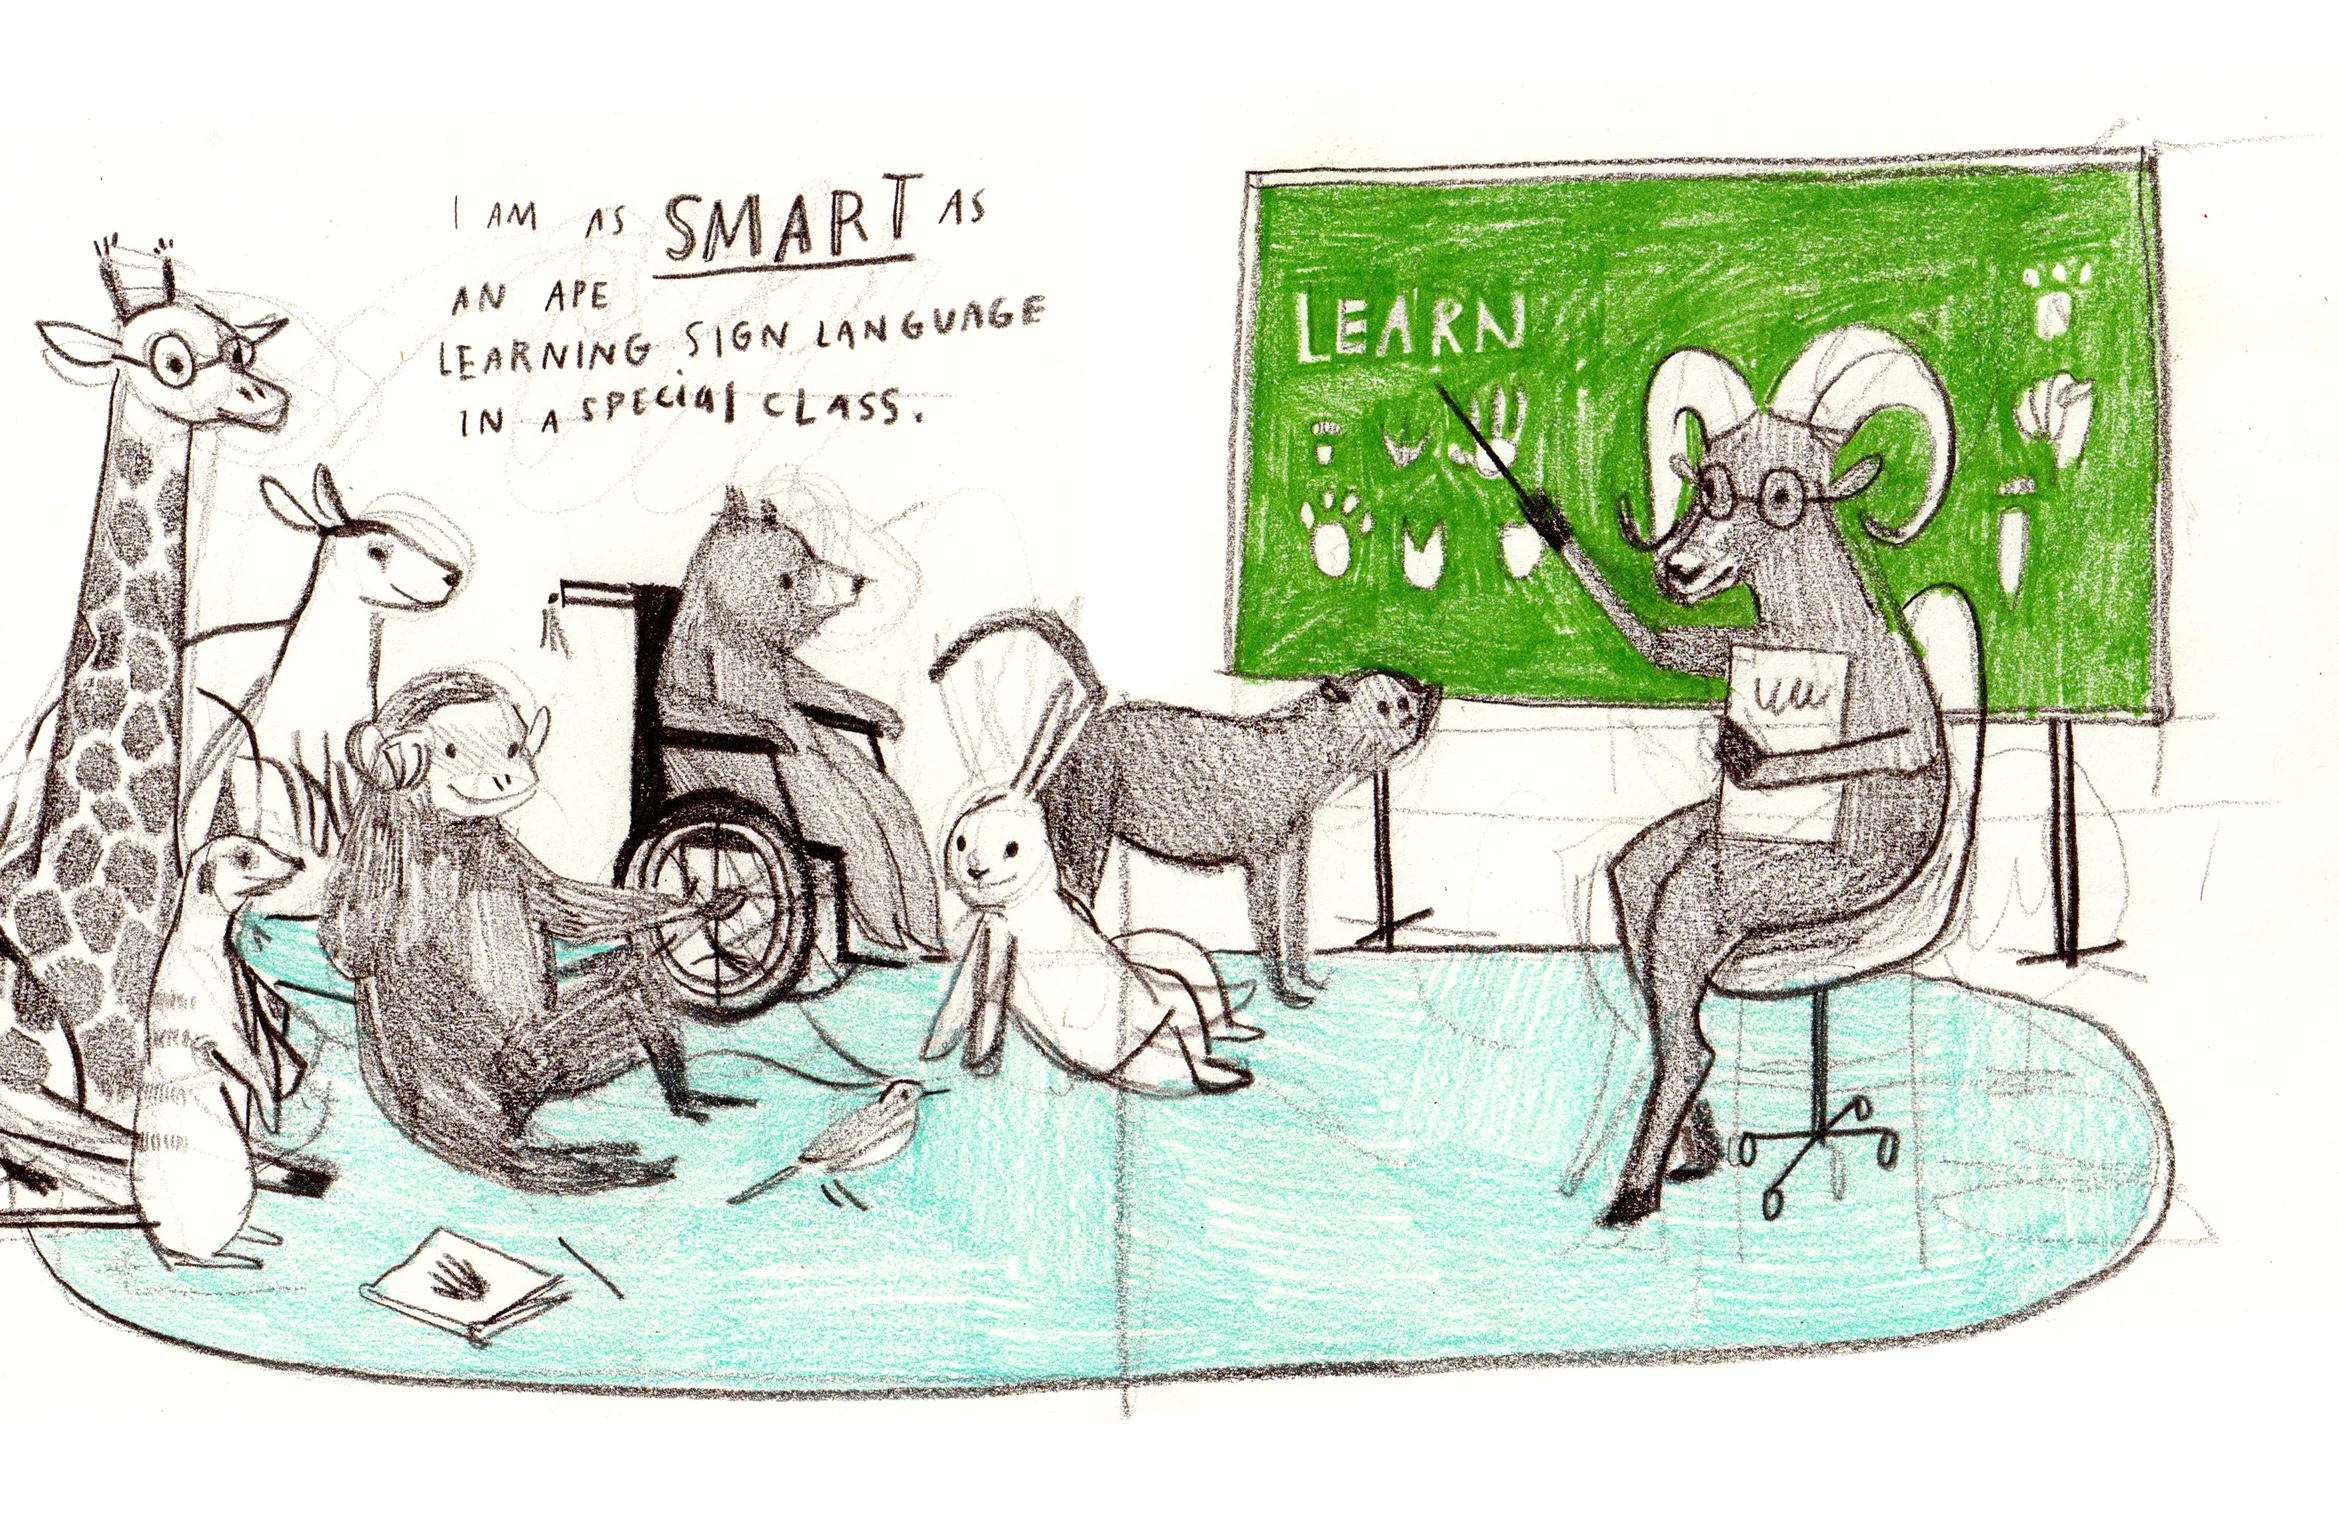 I AM AS SMART AS
AN APE
LEARNING SIGN LANGUAGE
IN A SPECial CLASS.
LEARN